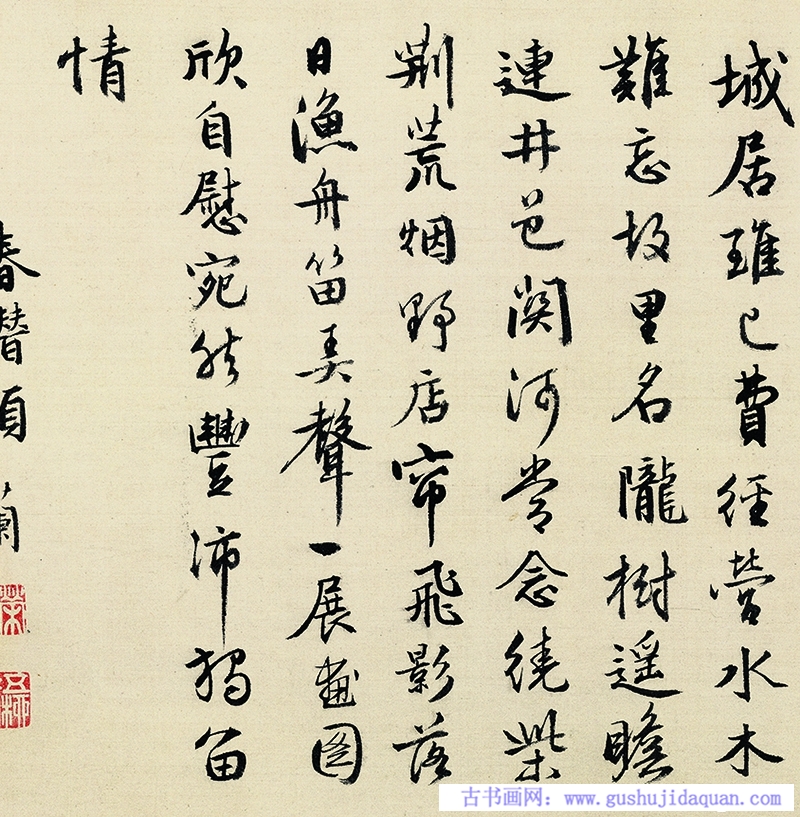 城居雖已費經營水木
難忘故里名隴樹遥瞻
連井邑關河常念繞柴
荆荒烟野店帘飛影落
日漁舟笛弄聲一展畫圖
欣自慰宛然豐沛獨留
情
春
古书画网：www.gushujidaquan.com